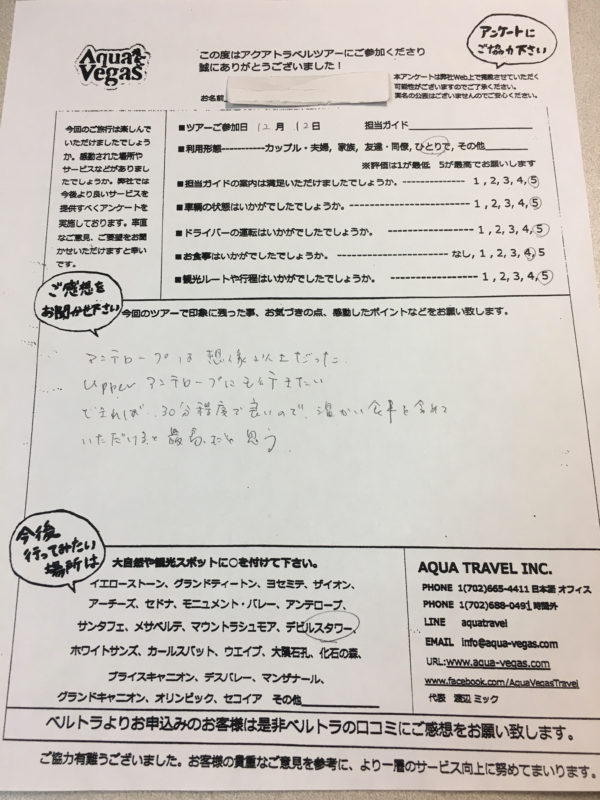 Aqua Vegas
この度はアクアトラベルツアーにご参加くださり
誠にありがとうございました！
アンケートに
ご協力下さい
本アンケートは弊社Web上で掲載させていただく
可能性がございますのでご了承ください。
実名の公表はございませんのでご安心ください。
お名前
今回のご旅行は楽しんで
いただけましたでしょう
か。感動された場所や
サービスなどがありまし
たでしょうか。弊社では
今後より良いサービスを
提供すべくアンケートを
実施しております。率直
なご意見、ご要望をお聞
かせいただけますと幸い
です。
■ツアーご参加日 12月 12日 担当ガイド
■利用形態-----------カップル・夫婦, 家族, 友達・同僚, ひとりで, その他
※評価は1が最低 5が最高でお願いします
■担当ガイドの案内は満足いただけましたでしょうか。 --------------- 1 , 2, 3, 4, 5
■車輌の状態はいかがでしたでしょうか。 ------------------ 1, 2, 3, 4, 5
■ドライバーの運転はいかがでしたでしょうか。 ---------------- 1, 2, 3, 4, 5
■お食事はいかがでしたでしょうか。 ------------------ なし, 1, 2, 3, 4, 5
■観光ルートや行程はいかがでしたでしょうか。 ------------------ 1, 2, 3, 4, 5
ご感想を
お聞かせ下さい
今回のツアーで印象に残った事、お気づきの点、感動したポイントなどをお願い致します。
アンテロープは想像以上だった。
Upper アンテロープにも行きたい
できれば、30分程度で良いので、温かい食事を含めて
いただけると最高だと思う
今後
行ってみたい
場所は
大自然や観光スポットに○を付けて下さい。
イエローストーン、グランドティートン、ヨセミテ、ザイオン、
アーチーズ、セドナ、モニュメント・バレー、アンテロープ、
サンタフェ、メサベルテ、マウントラシュモア、デビルスタワー、
ホワイトサンズ、カールスバット、ウエイブ、大隕石孔、化石の森、
ブライスキャニオン、デスバレー、マンザナール、
グランドキャニオン、オリンピック、セコイア その他
AQUA TRAVEL INC.
PHONE 1(702)665-4411 日本語 オフィス
PHONE 1(702)688-0491 時間外
LINE aquatravel
EMAIL info@aqua-vegas.com
URL:www.aqua-vegas.com
www.facebook.com/AquaVegasTravel
代表 渡辺 ミック
ベルトラよりお申込みのお客様は是非ベルトラの口コミにご感想をお願い致します。
ご協力有難うございました。お客様の貴重なご意見を参考に、より一層のサービス向上に努めてまいります。